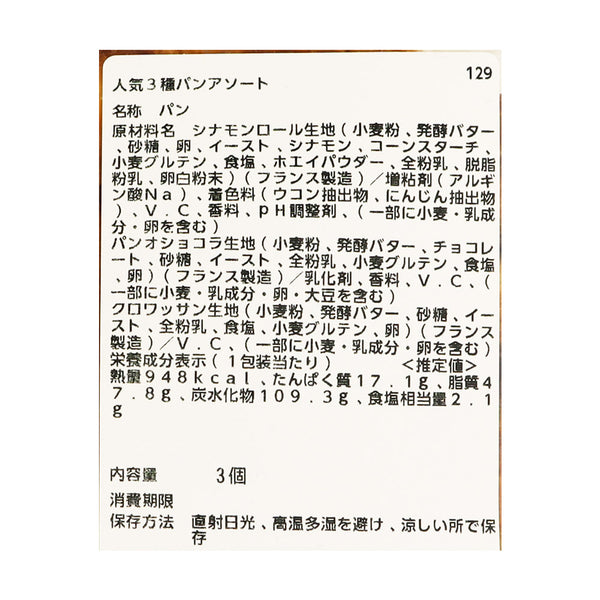 129
人気３種パンアソート
名称 パン
原材料名 シナモンロール生地(小麦粉、発酵バター
、砂糖、卵、イースト、シナモン、コーンスターチ、
小麦グルテン、食塩、ホエイパウダー、全粉乳、脱脂
粉乳、卵白粉末)(フランス製造)／増粘剤(アルギ
ン酸Ｎａ)、着色料(ウコン抽出物、にんじん抽出物
)、Ｖ.Ｃ、香料、ｐＨ調整剤、(一部に小麦・乳成
分・卵を含む)
パンオショコラ生地(小麦粉、発酵バター、チョコレ
ート、砂糖、イースト、全粉乳、小麦グルテン、食塩
、卵)(フランス製造)／乳化剤、香料、Ｖ.Ｃ、(
一部に小麦・乳成分・卵・大豆を含む)
クロワッサン生地(小麦粉、発酵バター、砂糖、イー
スト、全粉乳、食塩、小麦グルテン、卵)(フランス
製造)／Ｖ.Ｃ、(一部に小麦・乳成分・卵を含む)
栄養成分表示(１包装当たり) ＜推定値＞
熱量９４８ｋｃａｌ、たんぱく質１７.１ｇ、脂質４
７.８ｇ、炭水化物１０９.３ｇ、食塩相当量２.１
ｇ
内容量 3個
消費期限
保存方法 直射日光、高温多湿を避け、涼しい所で保
存